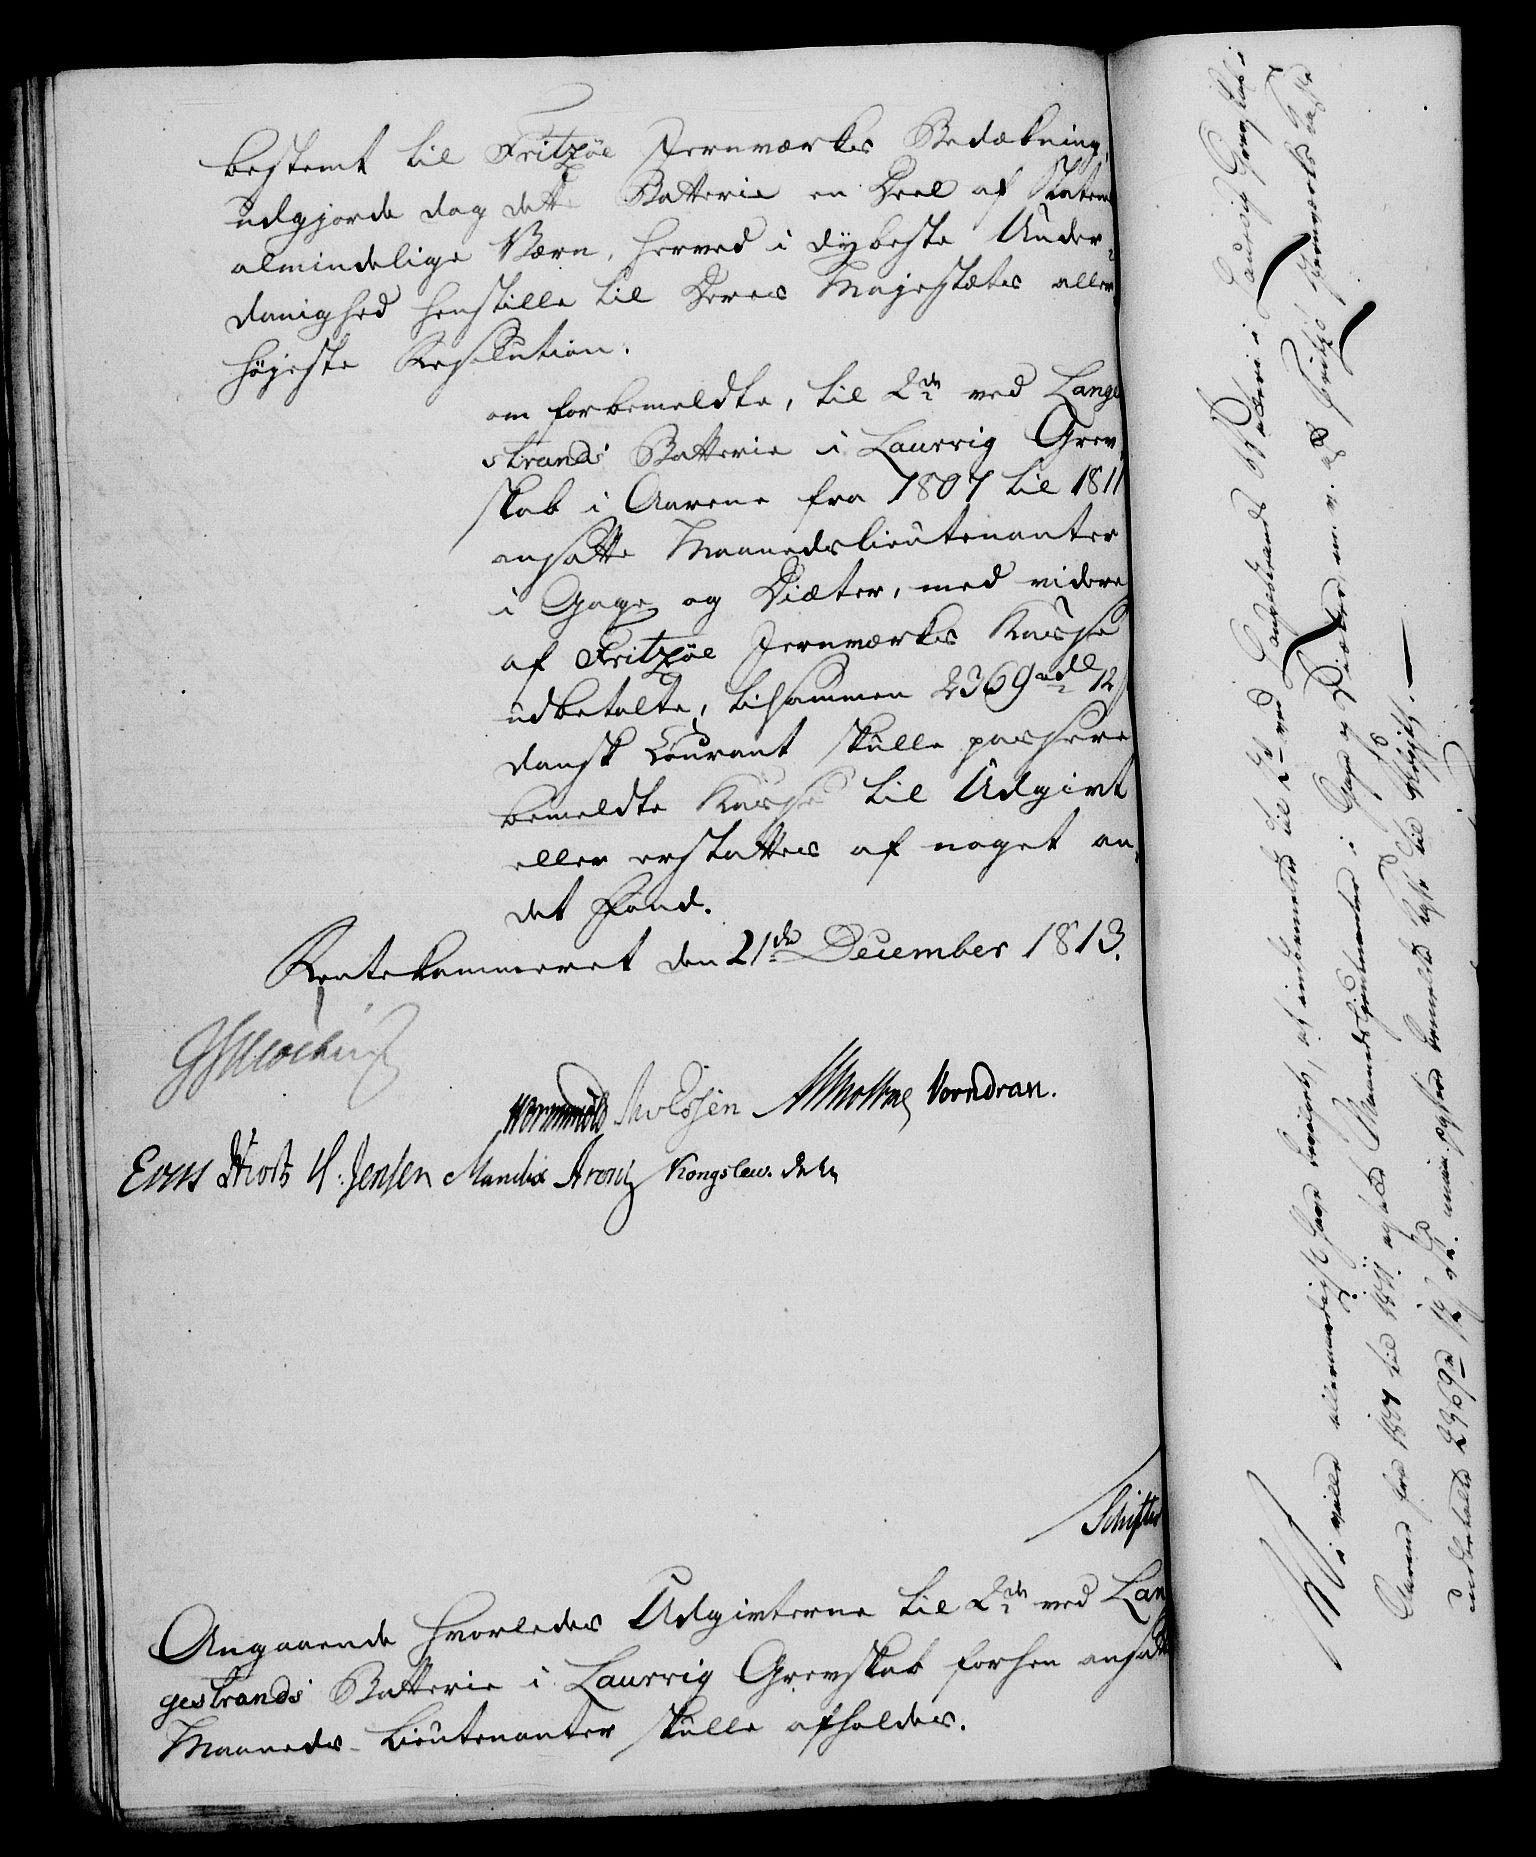 bestemt til Fritzøe Jernværkes Bedækning,
udgjorde dog dette Batterie en Deel af Statens
almindelige Værn, herved i dybeste Under-
danighed henstille til Deres Majestæts aller
høieste Resolution:
om forbemeldte, til 2de ved Lange
strands Batterie i Laurvig Grev
skab i Aarene fra 1807 til 1811
ansatte Maanedslieutenanter
i Gage og Diæter, med videre
af Fritzøe Jernværkes Kasse
udbetalte, tilsammen 2369 rdl 12
dansk Courant skulle passere
bemeldte Kasse til Udgivt
eller erstattes af noget an-
det Fond.
Rentekammeret den 21de December 1813.
Wormskiold Knoesen AWMoltke Vorndran.
Eeris Hiort H. Jensen Manthe Arentz Kongslew.
Schifter
Angaaende hvorledes Udgivterne til 2de ved Lan
gestrands Batterie i Laurvig Grevskab forhen ansatte
Maaneds-Lieutenanter skulle afholdes.
Vi ville allernaadigst have bevilget, at indbemeldte til 2de ved Langestrands Batterie i Laurvig Grevskab i
Aarene fra 1807 til 1811 ansatte Maanedslieutenanter i Gage og Diæter m. v. af Fritzø Jernværks Kasse
udbetalte 2369 rd 12 s. maa passere bemeldte Kasse til Udgift.